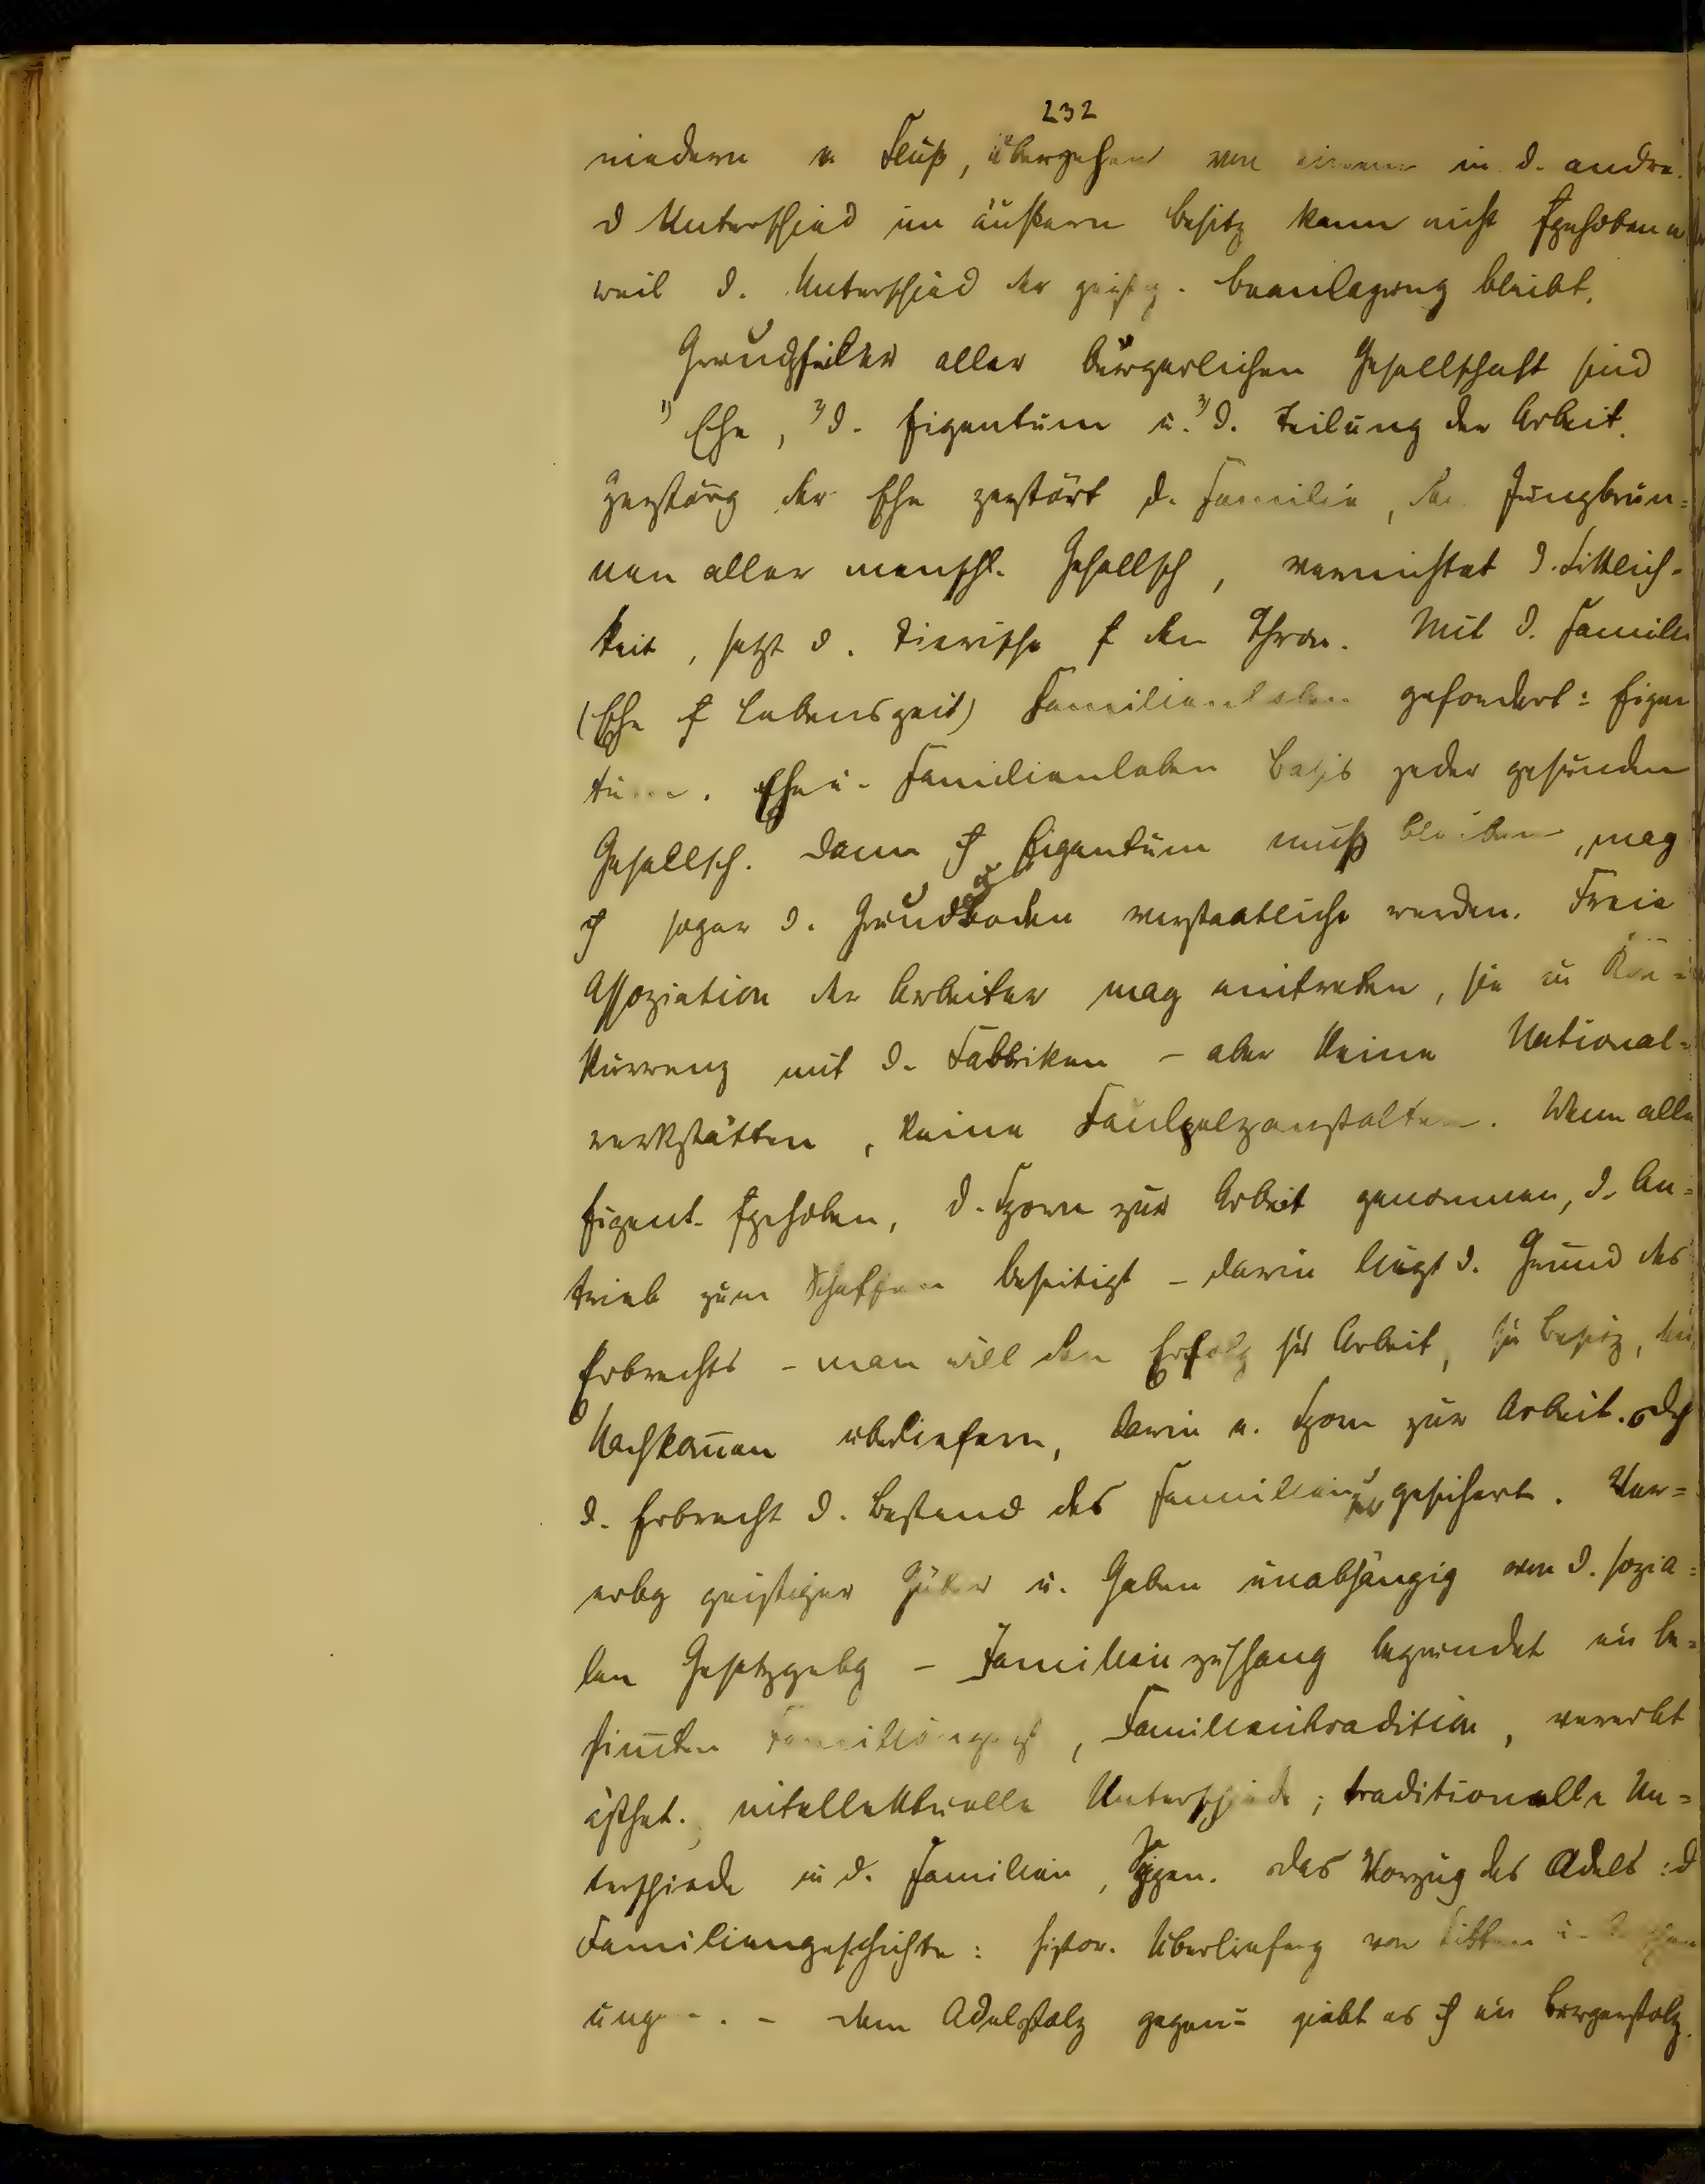 232
niedern u. Fluß, übergehend von einem in d. andre.
d Unterschied im äußern Besitz kann nicht fgehoben w
weil d. Unterschied der geistg. Beanlagung bleibt.
Grundpfeiler aller bürgerlichen Gesellschaft sind
1) Ehe, 2) d. Eigentum u. 3) d. Teilung der Arbeit.
Zerstörg der Ehe zerstört d. Familie, den Jungbrun=
nen aller menschl. Gesellsch, vernichtet d. Sittlich=
keit, setzt d. Tierische f den Thron. Mit d. Familie
(Ehe f Lebenszeit) Familienleben gefordert: Eigen
tum. Ehe u. Familienleben Basis jeder gesunden
Gesellsch. Dann Eigentum muß bleiben, mag
sogar d. Grundboden verstaatlicht werden. Freie
Assoziation der Arbeiter mag eintreten, sie in Kon=
kurrenz mit d. Fabbriken – aber keine National=
werkstätten, keine Faulpelzanstalten. Wenn alle
Eigent. fgehoben, d. Sporn zur Arbeit genommen, d. An=
trieb zum Schaffen beseitigt – darin liegt d. Grund des
Erbrechts – man will den Erfolg sr Arbeit, sn Besitz, den
Nachkom̅en überliefern, darin e. Sporn zur Arbeit.
d. Erbrecht d. Bestand der Familien gesichert. Ver=
erbg geistiger Güter u. Gaben unabhängig von d. sozia=
len Gesetzgebg – Familienzushang begründet ein be=
stim̅ten Familiengeist, Familientradition, vererbt
ästhet., intellektuelle Unterschiede; traditionelle Un=
terschiede in d. Familien, das Vorzug des Adels: d
Familiengeschichte: histor. Überliefrg von Sitten u.
ungen. – dem Adelstolz gegenü= giebt es ein Bürgerstolz.